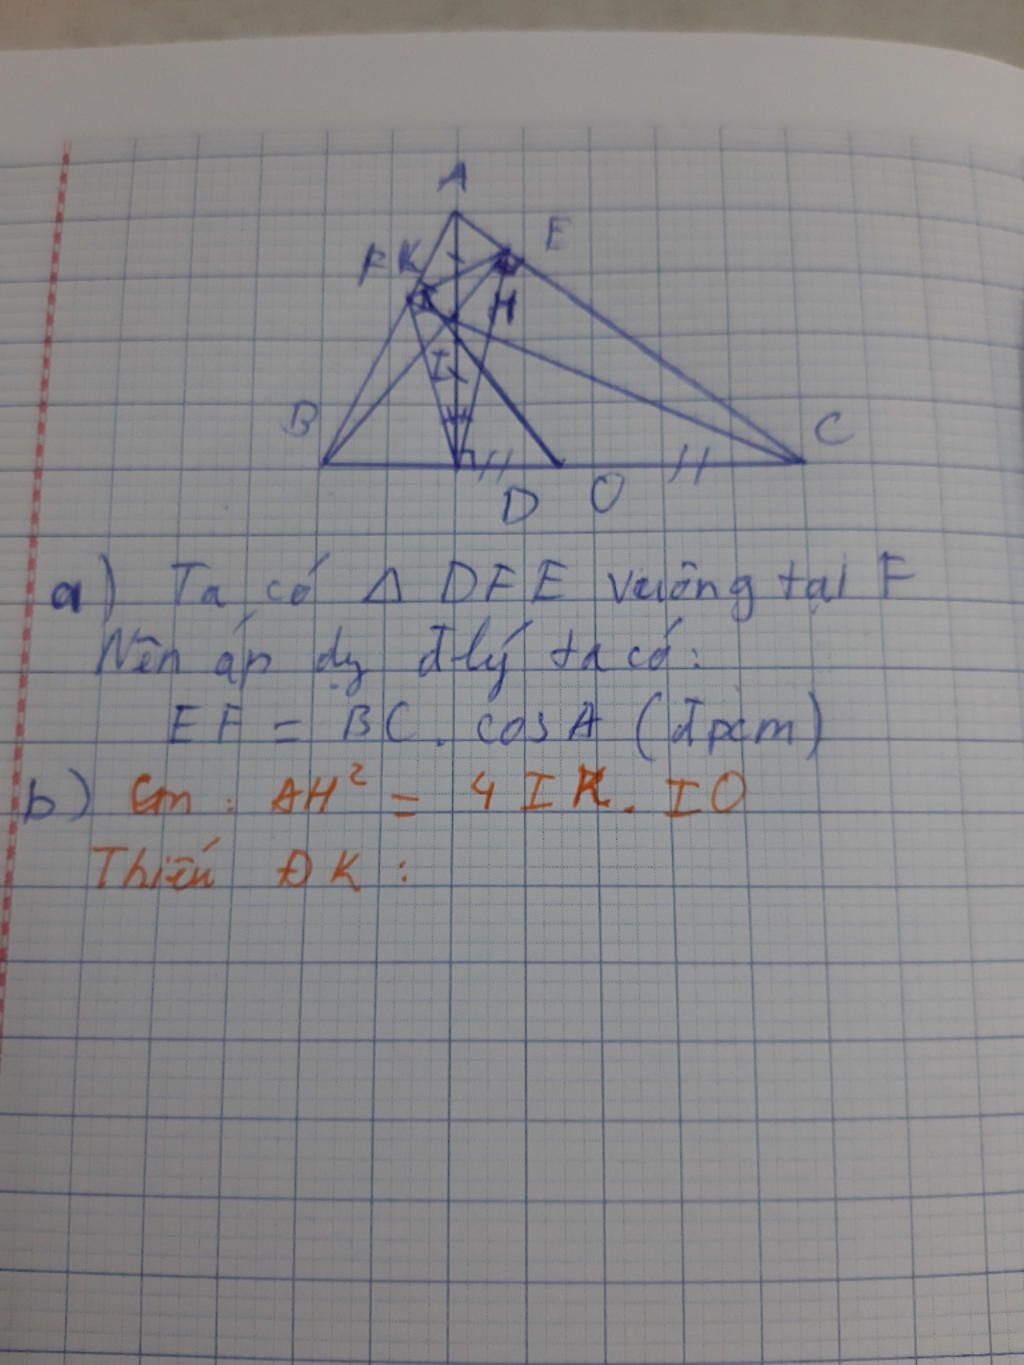 A
F K E
H
I
B C
D O
a) Ta có Δ DFE vuông tại F
Nên áp dg đlý ta có:
EF = BC . cosA (đpcm)
b) Cm : AH² = 4 IK . IO
Thiếu ĐK :